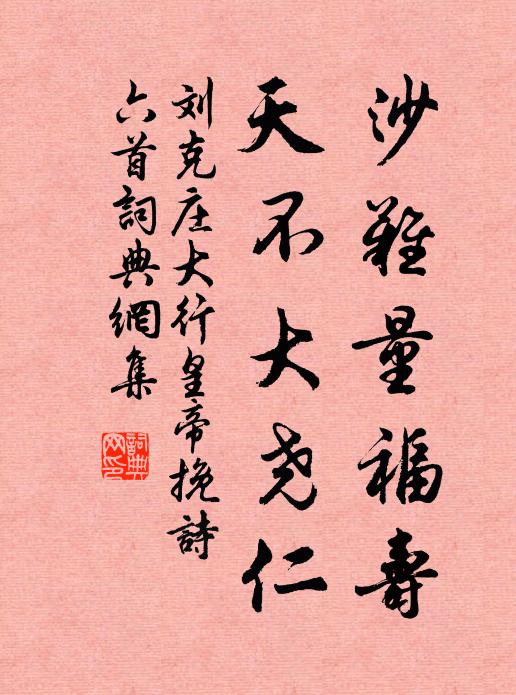 沙難量福壽
天不大尧仁
刘克庄大行皇帝挽詩
六首詞典網集
詞典
网印